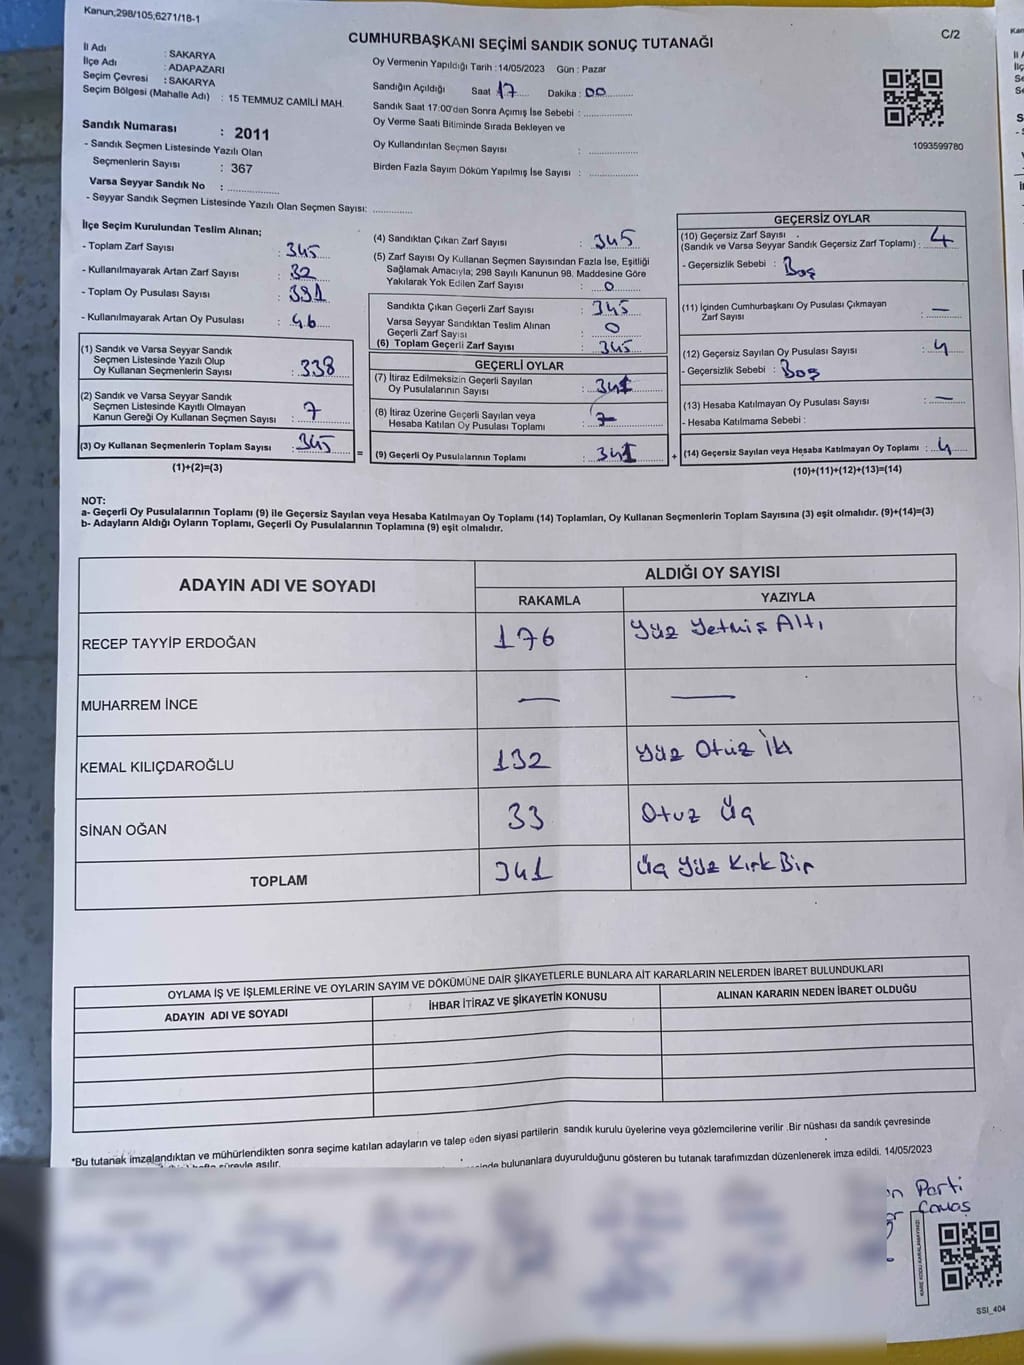 Kanun;298/105;6271/18-1
C/2
CUMHURBAŞKANI SEÇİMİ SANDIK SONUÇ TUTANAĞI
İl Adı : SAKARYA
İlçe Adı : ADAPAZARI
Seçim Çevresi : SAKARYA
Seçim Bölgesi (Mahalle Adı) : 15 TEMMUZ CAMİLİ MAH.
Sandık Numarası : 2011
- Sandık Seçmen Listesinde Yazılı Olan
Seçmenlerin Sayısı : 367
Varsa Seyyar Sandık No :
- Seyyar Sandık Seçmen Listesinde Yazılı Olan Seçmen Sayısı:
Oy Vermenin Yapıldığı Tarih :14/05/2023 Gün : Pazar
Sandığın Açıldığı Saat 17 Dakika : 00
Sandık Saat 17:00'den Sonra Açımış İse Sebebi :
Oy Verme Saati Bitiminde Sırada Bekleyen ve
Oy Kullandırılan Seçmen Sayısı :
Birden Fazla Sayım Döküm Yapılmış İse Sayısı :
1093599780
İlçe Seçim Kurulundan Teslim Alınan;
- Toplam Zarf Sayısı : 345
- Kullanılmayarak Artan Zarf Sayısı : 32
- Toplam Oy Pusulası Sayısı : 391
- Kullanılmayarak Artan Oy Pusulası : 46
(1) Sandık ve Varsa Seyyar Sandık
Seçmen Listesinde Yazılı Olup
Oy Kullanan Seçmenlerin Sayısı : 338
(2) Sandık ve Varsa Seyyar Sandık
Seçmen Listesinde Kayıtlı Olmayan
Kanun Gereği Oy Kullanan Seçmen Sayısı : 7
(3) Oy Kullanan Seçmenlerin Toplam Sayısı : 345
(1)+(2)=(3)
=
(4) Sandıktan Çıkan Zarf Sayısı : 345
(5) Zarf Sayısı Oy Kullanan Seçmen Sayısından Fazla İse, Eşitliği
Sağlamak Amacıyla; 298 Sayılı Kanunun 98. Maddesine Göre
Yakılarak Yok Edilen Zarf Sayısı : 0
Sandıkta Çıkan Geçerli Zarf Sayısı : 345
Varsa Seyyar Sandıktan Teslim Alınan
Geçerli Zarf Sayısı : 0
(6) Toplam Geçerli Zarf Sayısı : 345
GEÇERLİ OYLAR
(7) İtiraz Edilmeksizin Geçerli Sayılan
Oy Pusulalarının Sayısı : 341
(8) İtiraz Üzerine Geçerli Sayılan veya
Hesaba Katılan Oy Pusulası Toplamı :
(9) Geçerli Oy Pusulalarının Toplamı : 341
+
GEÇERSİZ OYLAR
(10) Geçersiz Zarf Sayısı
(Sandık ve Varsa Seyyar Sandık Geçersiz Zarf Toplamı) : 4
- Geçersizlik Sebebi : Boş
(11) İçinden Cumhurbaşkanı Oy Pusulası Çıkmayan
Zarf Sayısı : —
(12) Geçersiz Sayılan Oy Pusulası Sayısı : 4
- Geçersizlik Sebebi : Boş
(13) Hesaba Katılmayan Oy Pusulası Sayısı : —
- Hesaba Katılmama Sebebi :
(14) Geçersiz Sayılan veya Hesaba Katılmayan Oy Toplamı : 4
(10)+(11)+(12)+(13)=(14)
NOT:
a- Geçerli Oy Pusulalarının Toplamı (9) ile Geçersiz Sayılan veya Hesaba Katılmayan Oy Toplamı (14) Toplamları, Oy Kullanan Seçmenlerin Toplam Sayısına (3) eşit olmalıdır. (9)+(14)=(3)
b- Adayların Aldığı Oyların Toplamı, Geçerli Oy Pusulalarının Toplamına (9) eşit olmalıdır.
ADAYIN ADI VE SOYADI
ALDIĞI OY SAYISI
RAKAMLA YAZIYLA
RECEP TAYYİP ERDOĞAN 176 Yüz Yetmiş Altı
MUHARREM İNCE — —
KEMAL KILIÇDAROĞLU 132 Yüz Otuz İki
SİNAN OĞAN 33 Otuz Üç
TOPLAM 341 Üç Yüz Kırk Bir
OYLAMA İŞ VE İŞLEMLERİNE VE OYLARIN SAYIM VE DÖKÜMÜNE DAİR ŞİKAYETLERLE BUNLARA AİT KARARLARIN NELERDEN İBARET BULUNDUKLARI
ADAYIN ADI VE SOYADI İHBAR İTİRAZ VE ŞİKAYETİN KONUSU ALINAN KARARIN NEDEN İBARET OLDUĞU
*Bu tutanak imzalandıktan ve mühürlendikten sonra seçime katılan adayların ve talep eden siyasi partilerin sandık kurulu üyelerine veya gözlemcilerine verilir .Bir nüshası da sandık çevresinde
süreyle asılır.
bulunanlara duyurulduğunu gösteren bu tutanak tarafımızdan düzenlenerek imza edildi. 14/05/2023
Parti
KARE KODU KARALAMAYINIZ!
SSI_404